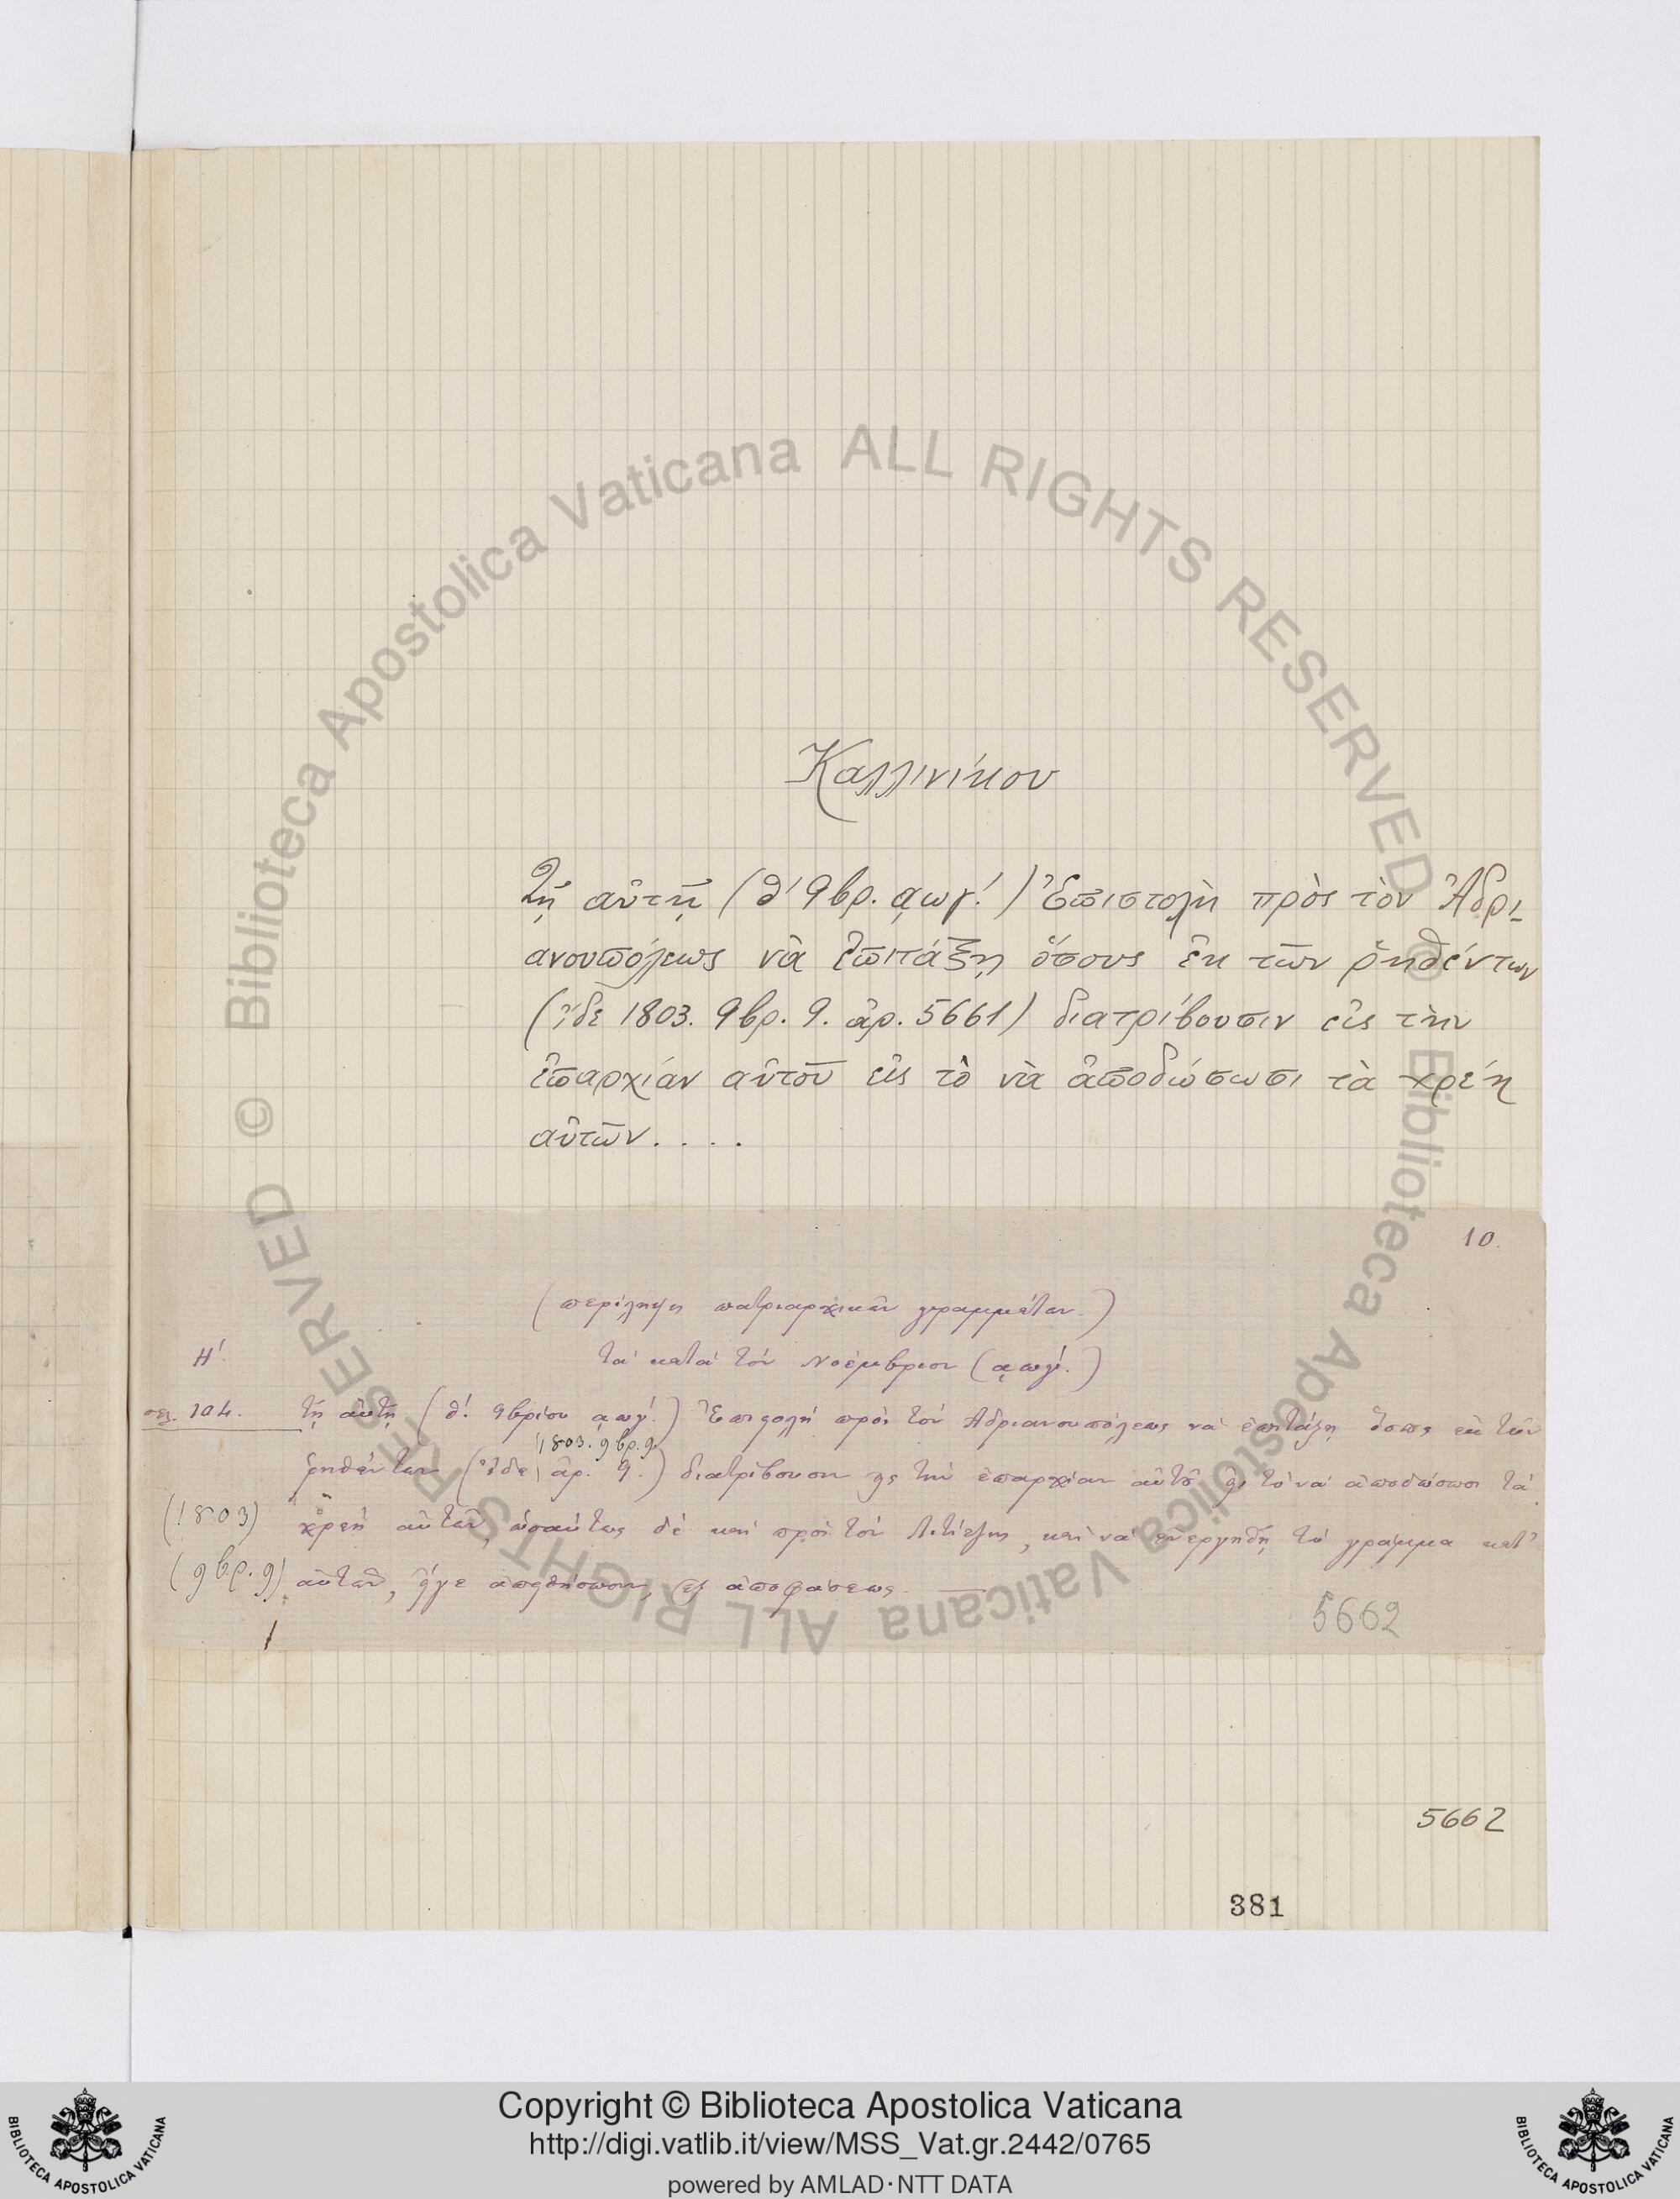 Καλλινίκου
Τῇ αὐτῇ (θ΄ 9βρ. ͵αωγ΄.) Ἐπιστολὴ πρὸς τὸν Ἀδρι-
ανουπόλεως νὰ ἐπιτάξῃ ὅσους ἐκ τῶν ῥηθέντων
(ἴδε 1803. 9βρ. 9. ἀρ. 5661) διατρίβουσιν εἰς τὴν
ἐπαρχίαν αὐτοῦ εἰς τὸ νὰ ἀποδώσωσι τὰ χρέη
αὐτῶν. . . .
10.
(περίληψις πατριαρχικῶν γραμμάτων.)
Η΄. τὰ κατὰ τὸν Νοέμβριον (͵αωγ΄.)
σελ. 104. τῇ αὐτῇ (θ΄. 9βρίου ͵αωγ΄.) Ἐπιστολὴ πρὸς τὸν Ἀδριανουπόλεως νὰ ἐπιτάξῃ ὅσους ἐκ τῶν
1803. 9βρ. 9.
ῥηθέντων (ἴδε ἀρ. 9.) διατρίβουσιν εἰς τὴν ἐπαρχίαν αὐτοῦ εἰς τὸ νὰ ἀποδώσωσι τὰ
(1803) χρέη αὐτῶν, ὡσαύτως δὲ καὶ πρὸς τὸν Λιτίτζης, καὶ νὰ ἐνεργηθῇ τὸ γράμμα κατ᾽
(9βρ. 9) αὐτῶν, ἐξ ἀποφάσεως. —
5662
5662
381
Copyright © Biblioteca Apostolica Vaticana
http://digi.vatlib.it/view/MSS_Vat.gr.2442/0765
powered by AMLAD·NTT DATA
© Biblioteca Apostolica Vaticana ALL RIGHTS RESERVED
© Biblioteca Apostolica Vaticana ALL RIGHTS RESERVED
BIBLIOTECA APOSTOLICA VATICANA
BIBLIOTECA APOSTOLICA VATICANA